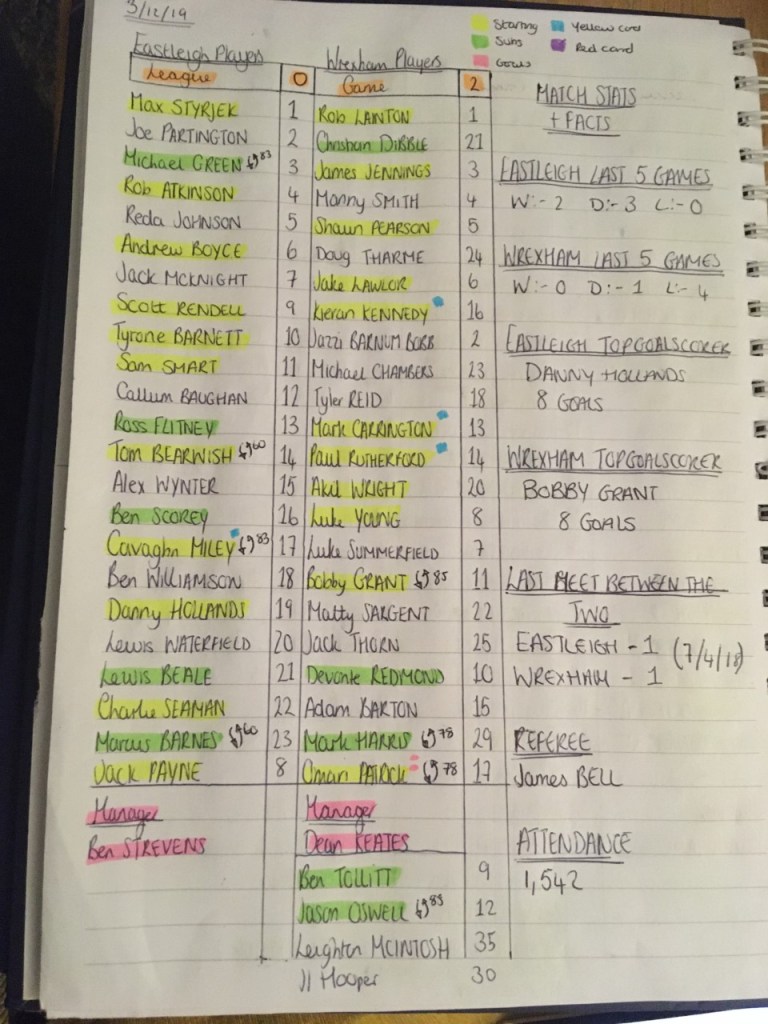 3/12/19
Starting
Yellow card
Subs
Red card
Goals
Eastleigh Players
Wrexham Players
League 0 Game 2
Max STYRJEK 1 Rob LAINTON 1
Joe PARTINGTON 2 Christian DIBBLE 21
Michael GREEN 83 3 James JENNINGS 3
Rob ATKINSON 4 Manny SMITH 4
Reda JOHNSON 5 Shaun PEARSON 5
Andrew BOYCE 6 Doug THARME 24
Jack McKNIGHT 7 Jake LAWLOR 6
Scott RENDELL 9 Kieran KENNEDY 16
Tyrone BARNETT 10 Jazzi BARNUM BOBB 2
Sam SMART 11 Michael CHAMBERS 23
Callum BAUGHAN 12 Tyler REID 18
Ross FLITNEY 13 Mark CARRINGTON 13
Tom BEARWISH 60 14 Paul RUTHERFORD 14
Alex WYNTER 15 Akil WRIGHT 20
Ben SCOREY 16 Luke YOUNG 8
Cavaghn MILEY 83 17 Luke SUMMERFIELD 7
Ben WILLIAMSON 18 Bobby GRANT 85 11
Danny HOLLANDS 19 Matty SARGENT 22
Lewis WATERFIELD 20 Jack THORN 25
Lewis BEALE 21 Devonte REDMOND 10
Charlie SEAMAN 22 Adam BARTON 15
Marcus BARNES 60 23 Mark HARRIS 78 29
Jack PAYNE 8 Omari PATRICK 78 17
Manager
Ben STREVENS
Manager
Dean KEATES
Ben TOLLITT 9
Jason OSWELL 85 12
Leighton McINTOSH 35
JJ Hooper 30
MATCH STATS
+ FACTS
EASTLEIGH LAST 5 GAMES
W:- 2 D:- 3 L:- 0
WREXHAM LAST 5 GAMES
W:- 0 D:- 1 L:- 4
EASTLEIGH TOPGOALSCORER
DANNY HOLLANDS
8 GOALS
WREXHAM TOPGOALSCORER
BOBBY GRANT
8 GOALS
LAST MEET BETWEEN THE
TWO
EASTLEIGH - 1 (7/4/18)
WREXHAM - 1
REFEREE
James BELL
ATTENDANCE
1,542